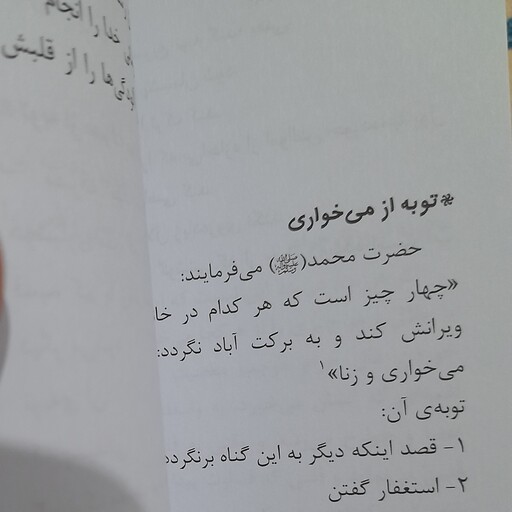 خدا را انجام
ها را از قلبش
* توبه از می‌خواری
حضرت محمد(ﷺ) می‌فرمایند:
«چهار چیز است که هر کدام در خا
ویرانش کند و به برکت آباد نگردد:
می‌خواری و زنا»۱
توبه‌ی آن:
۱- قصد اینکه دیگر به این گناه برنگردد
۲- استغفار گفتن